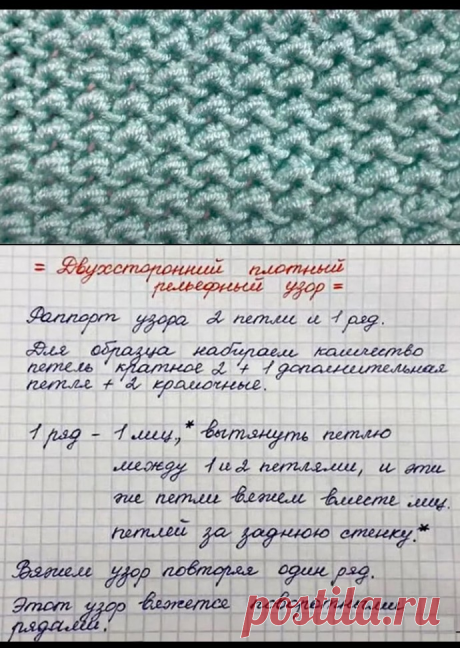 = Двухсторонний плотный
рельефный узор =
Раппорт узора 2 петли и 1 ряд.
Для образца набираем количество
петель кратное 2 + 1 дополнительная
петля + 2 кромочные.
1 ряд - 1 лиц,* вытянуть петлю
между 1 и 2 петлями, и эти
же петли вяжем вместе лиц.
петлей за заднюю стенку.*
Вяжем узор повторяя один ряд.
Этот узор вяжется поворотными
рядами.
postila.ru